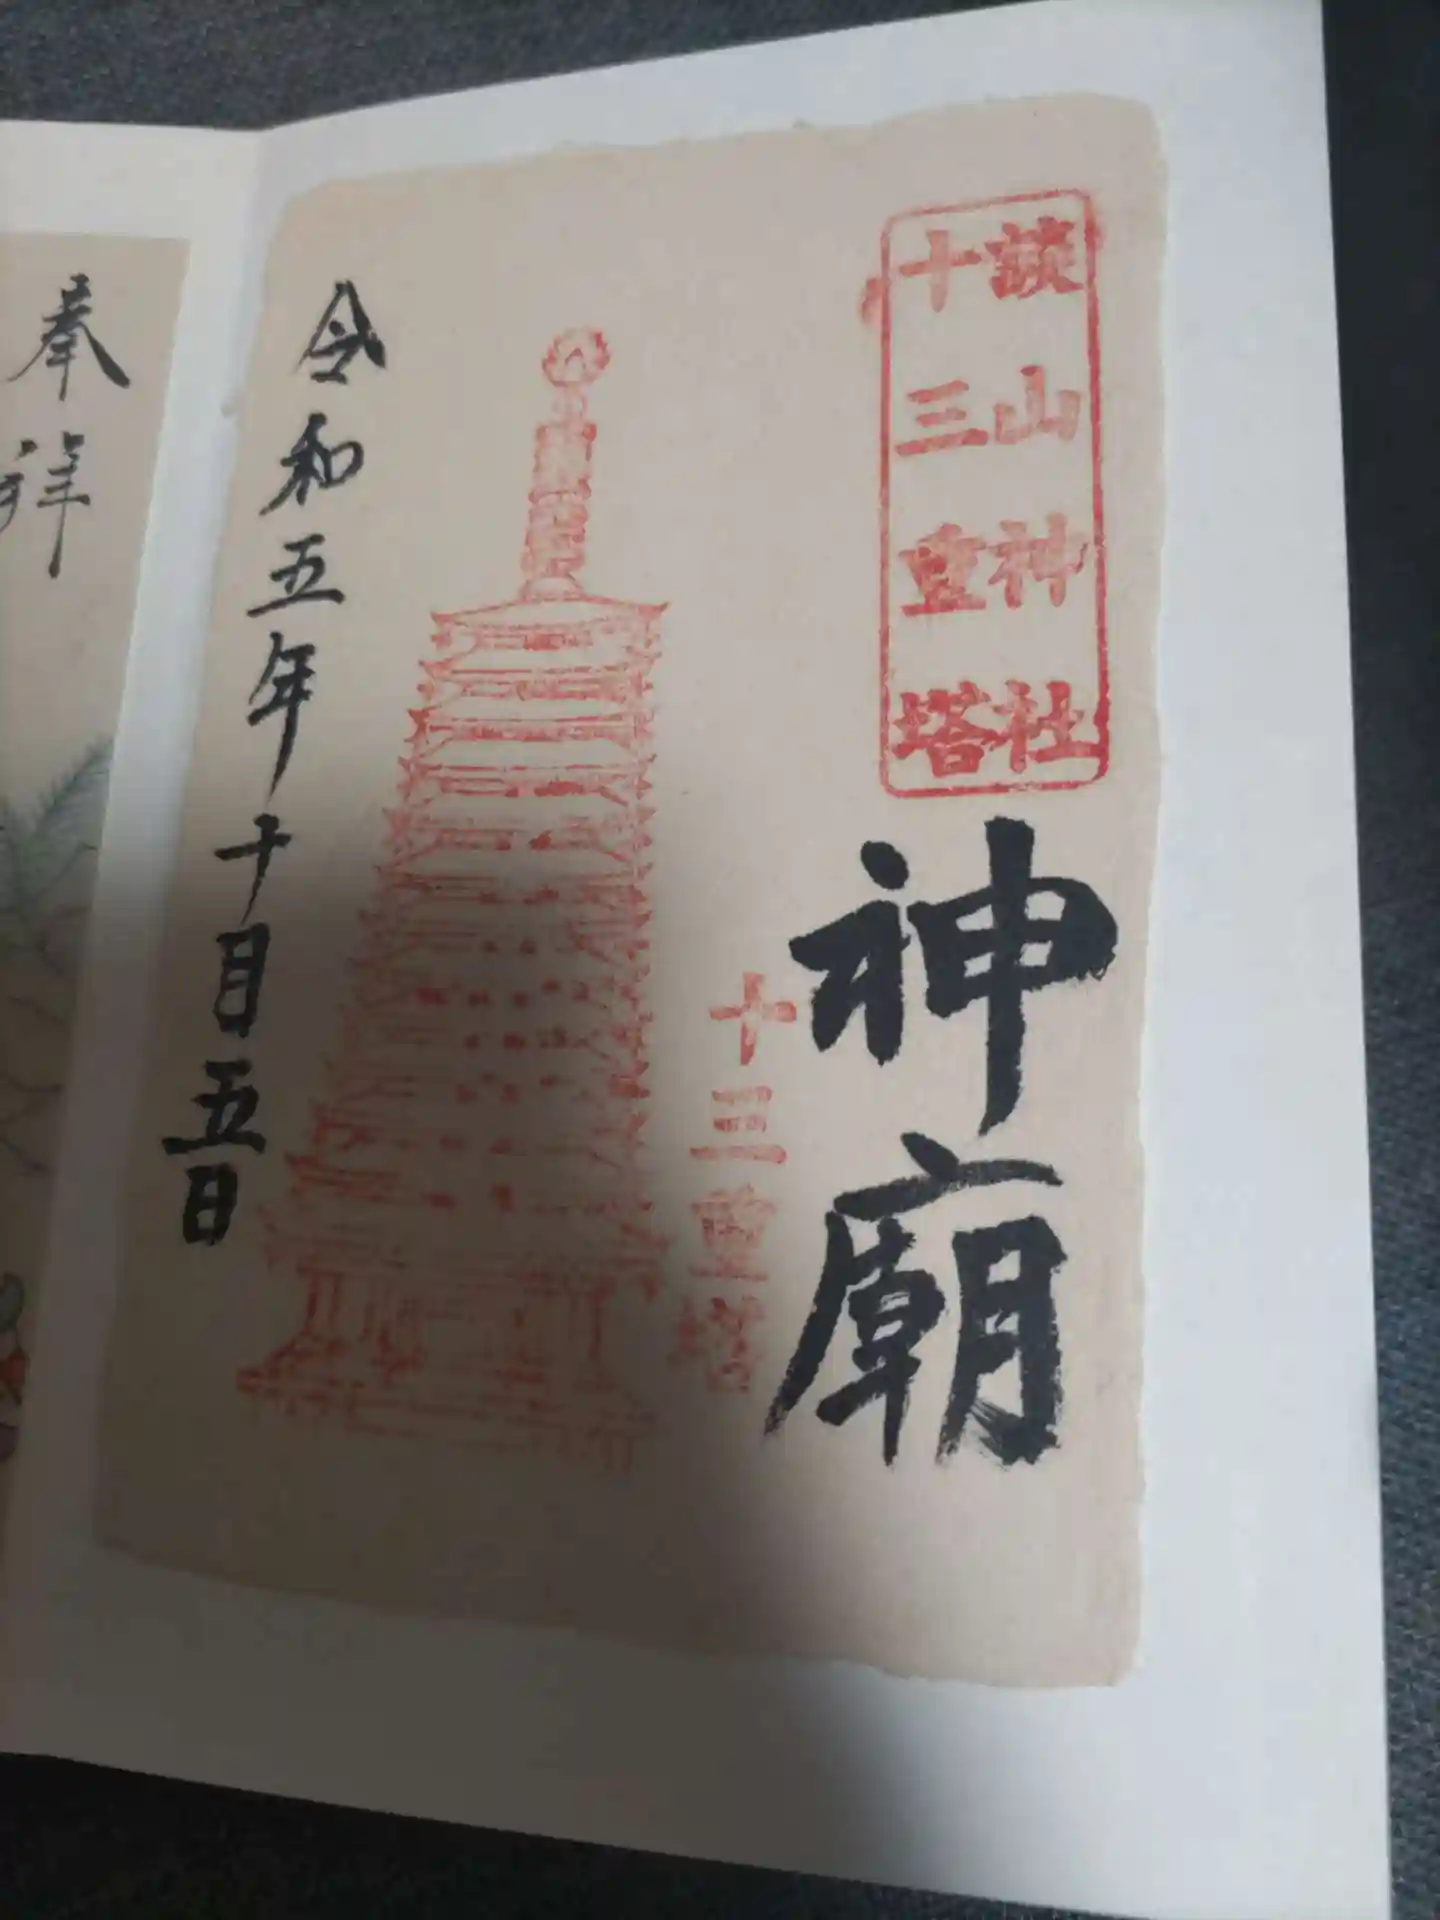 談山神社
十三重塔
神廟
十三重塔
令和五年十月五日
奉
祥